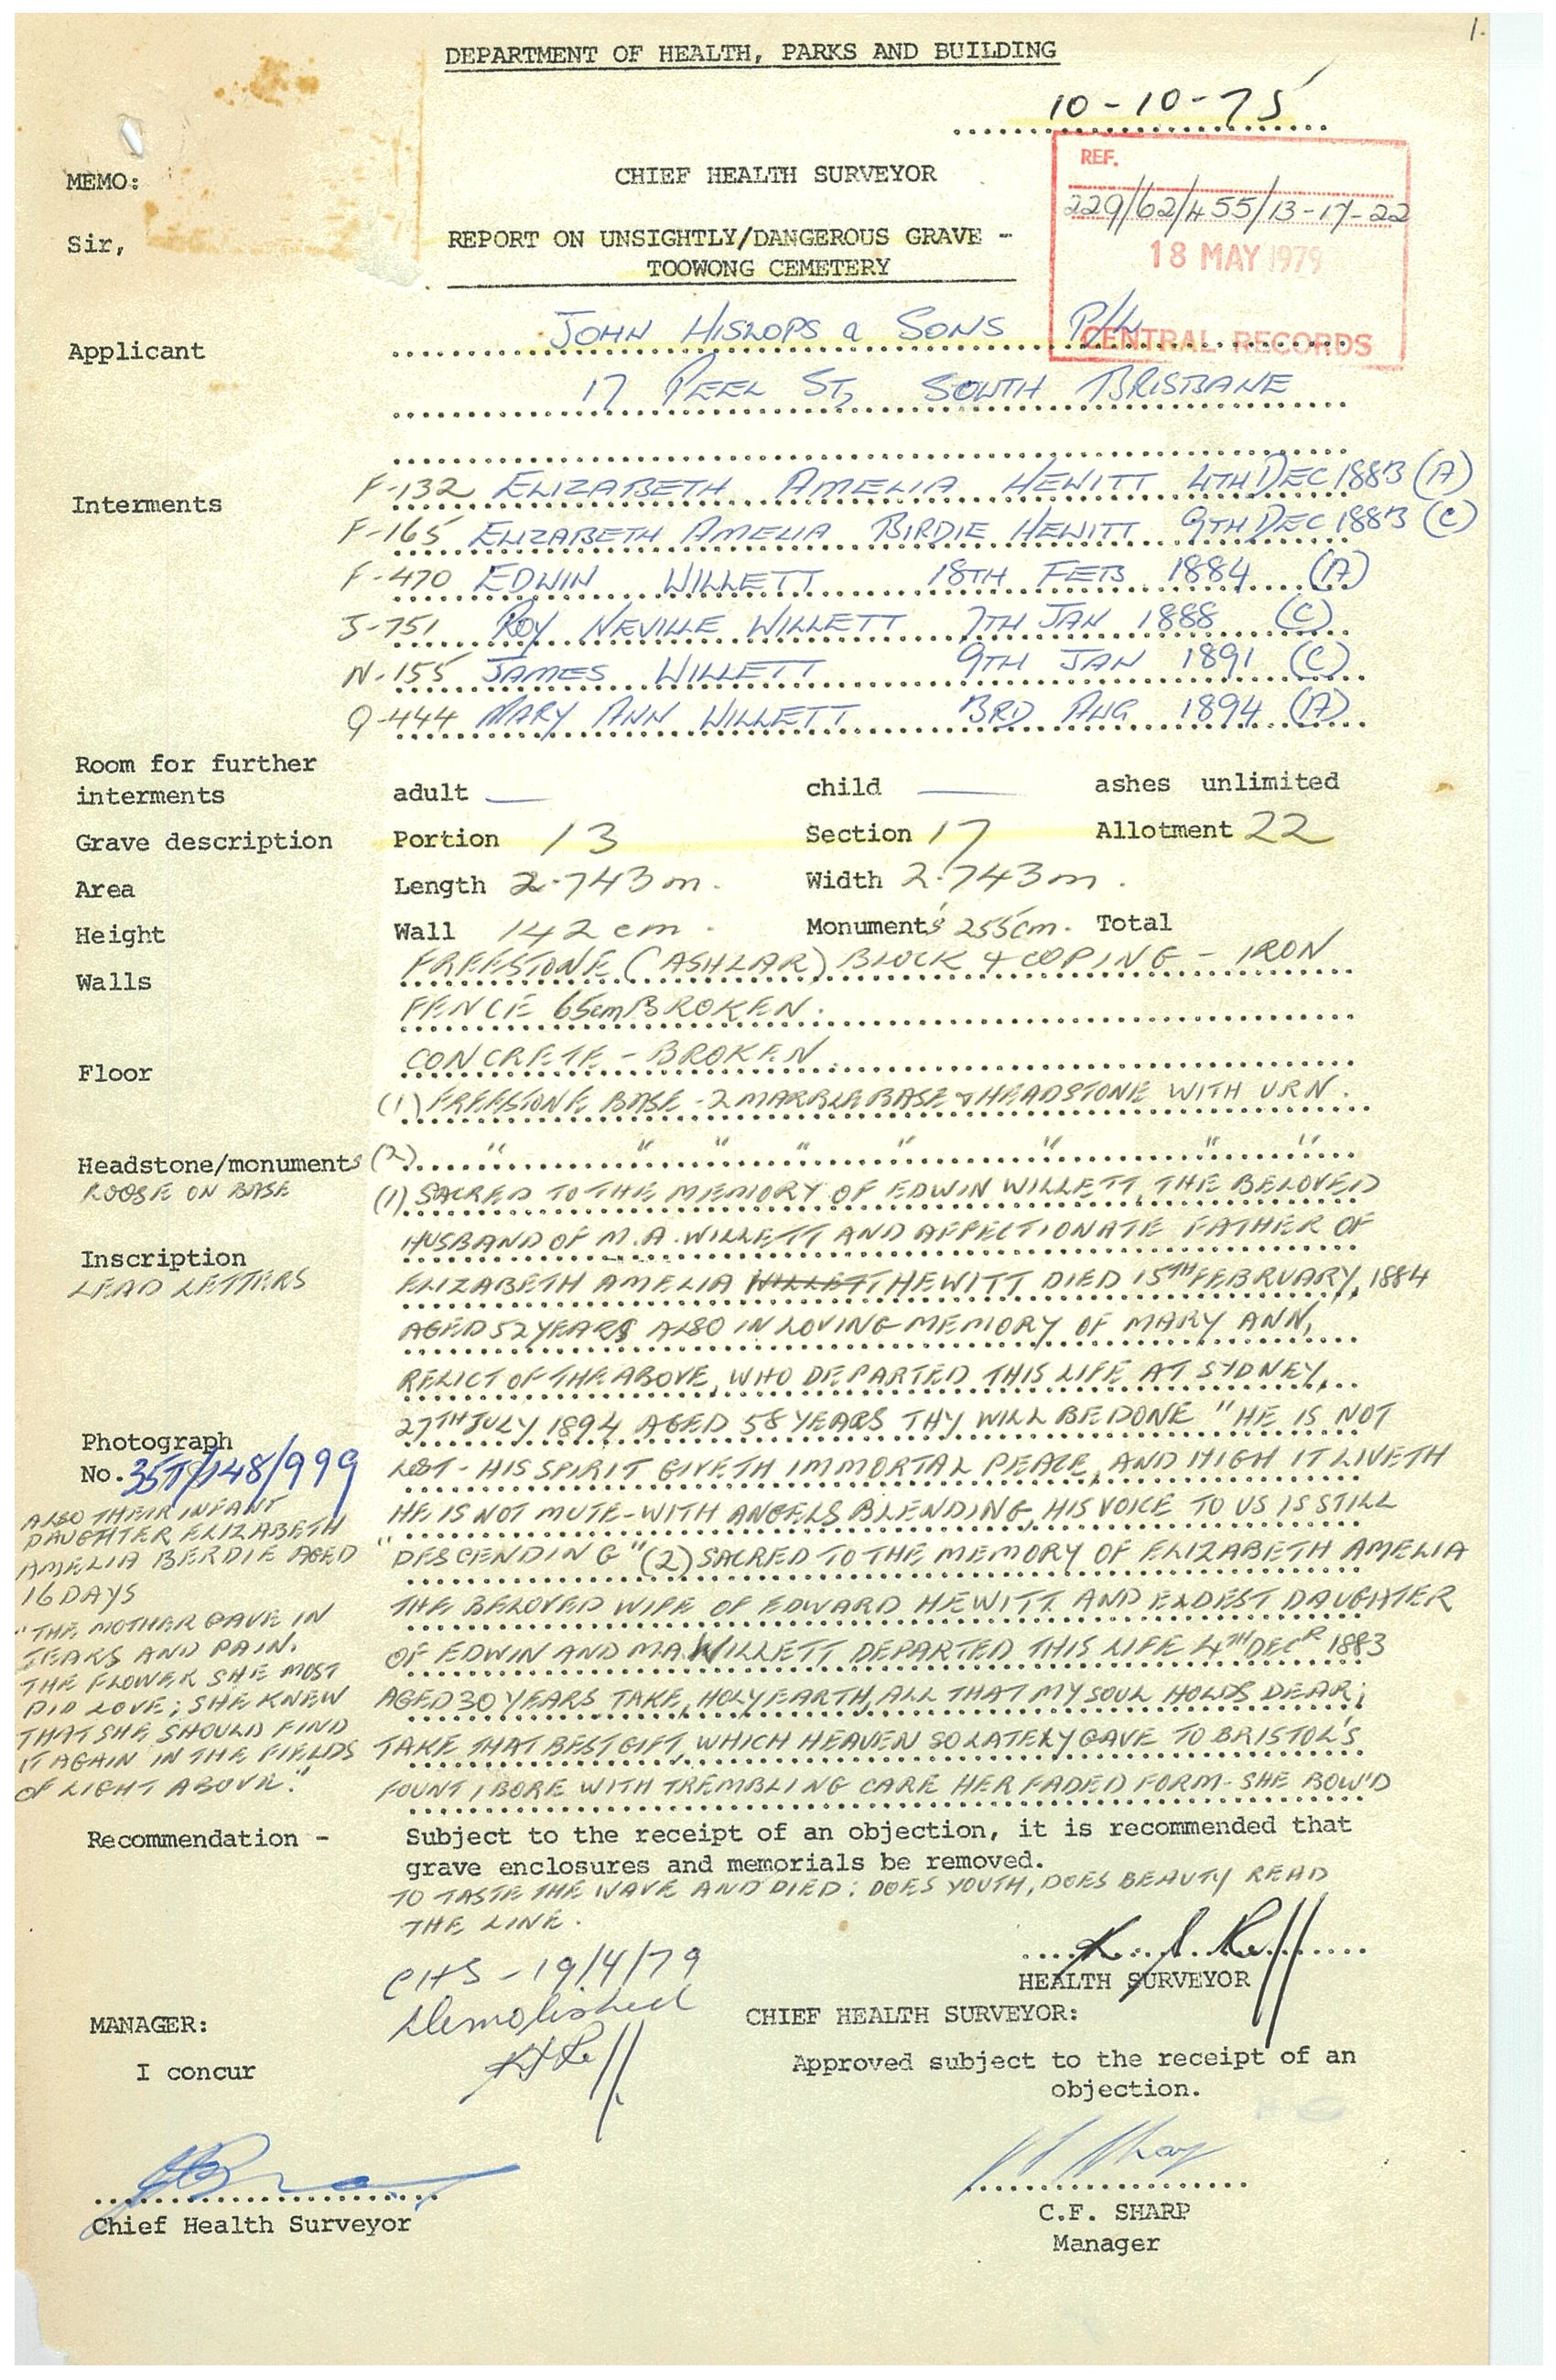 1.
DEPARTMENT OF HEALTH, PARKS AND BUILDING
10-10-75
REF.
MEMO:
CHIEF HEALTH SURVEYOR
229/62/455/13-17-22
Sir,
REPORT ON UNSIGHTLY/DANGEROUS GRAVE -
18 MAY 1979
TOOWONG CEMETERY
Applicant JOHN HISLOPS & SONS P/L
CENTRAL RECORDS
17 PEEL ST, SOUTH BRISBANE
Interments F-132 ELIZABETH AMELIA HEWITT 4TH DEC 1883 (A)
F-165 ELIZABETH AMELIA BIRDIE HEWITT 9TH DEC 1883 (C)
F-470 EDWIN WILLETT 18TH FEB 1884 (A)
J-751 ROY NEVILLE WILLETT 7TH JAN 1888 (C)
N-155 JAMES WILLETT 9TH JAN 1891 (C)
Q-444 MARY ANN WILLETT 3RD AUG 1894 (A)
Room for further
interments adult — child — ashes unlimited
Grave description Portion 13 Section 17 Allotment 22
Area Length 2.743m. Width 2.743m.
Height Wall 142 cm. Monuments 255cm. Total
Walls FREESTONE (ASHLAR) BLOCK & COPING - IRON
FENCE 65cm BROKEN.
Floor CONCRETE - BROKEN.
(1) FREESTONE BASE - 2 MARBLE BASE & HEADSTONE WITH URN.
Headstone/monuments (2) " " " " " " " "
LOOSE ON BASE
(1) SACRED TO THE MEMORY OF EDWIN WILLETT, THE BELOVED
HUSBAND OF M.A. WILLETT AND AFFECTIONATE FATHER OF
Inscription
LEAD LETTERS
ELIZABETH AMELIA WILLETT HEWITT DIED 15TH FEBRUARY, 1884
AGED 52 YEARS ALSO IN LOVING MEMORY OF MARY ANN,
RELICT OF THE ABOVE, WHO DEPARTED THIS LIFE AT SYDNEY,
27TH JULY 1894 AGED 58 YEARS THY WILL BE DONE "HE IS NOT
Photograph
No. 35T/148/999
LOST - HIS SPIRIT GIVETH IMMORTAL PEACE, AND HIGH IT LIVETH
HE IS NOT MUTE - WITH ANGELS BLENDING, HIS VOICE TO US IS STILL
"DESCENDING" (2) SACRED TO THE MEMORY OF ELIZABETH AMELIA
THE BELOVED WIFE OF EDWARD HEWITT AND ELDEST DAUGHTER
OF EDWIN AND M.A. WILLETT DEPARTED THIS LIFE 4TH DECR 1883
AGED 30 YEARS TAKE, HOLY EARTH, ALL THAT MY SOUL HOLDS DEAR;
TAKE THAT BEST GIFT, WHICH HEAVEN SO LATELY GAVE TO BRISTOL'S
FOUNT I BORE WITH TREMBLING CARE HER FADED FORM - SHE BOW'D
ALSO THEIR INFANT
DAUGHTER ELIZABETH
AMELIA BERDIE AGED
16 DAYS
"THE MOTHER GAVE IN
TEARS AND PAIN.
THE FLOWER SHE MOST
DID LOVE; SHE KNEW
THAT SHE SHOULD FIND
IT AGAIN IN THE FIELDS
OF LIGHT ABOVE."
Recommendation - Subject to the receipt of an objection, it is recommended that
grave enclosures and memorials be removed.
TO TASTE THE WAVE AND DIED: DOES YOUTH, DOES BEAUTY READ
THE LINE.
HEALTH SURVEYOR
CHS - 19/4/79
Demolished
MANAGER:
CHIEF HEALTH SURVEYOR:
I concur
Approved subject to the receipt of an
objection.
Chief Health Surveyor
C.F. SHARP
Manager